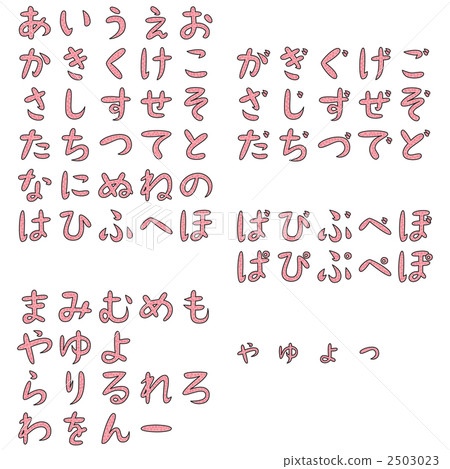 あいうえお
かきくけこ
さしすせそ
たちつてと
なにぬねの
はひふへほ
まみむめも
やゆよ
らりるれろ
わをんー
がぎぐげご
ざじずぜぞ
だぢづでど
ばびぶべぼ
ぱぴぷぺぽ
ゃゅょっ
2503023